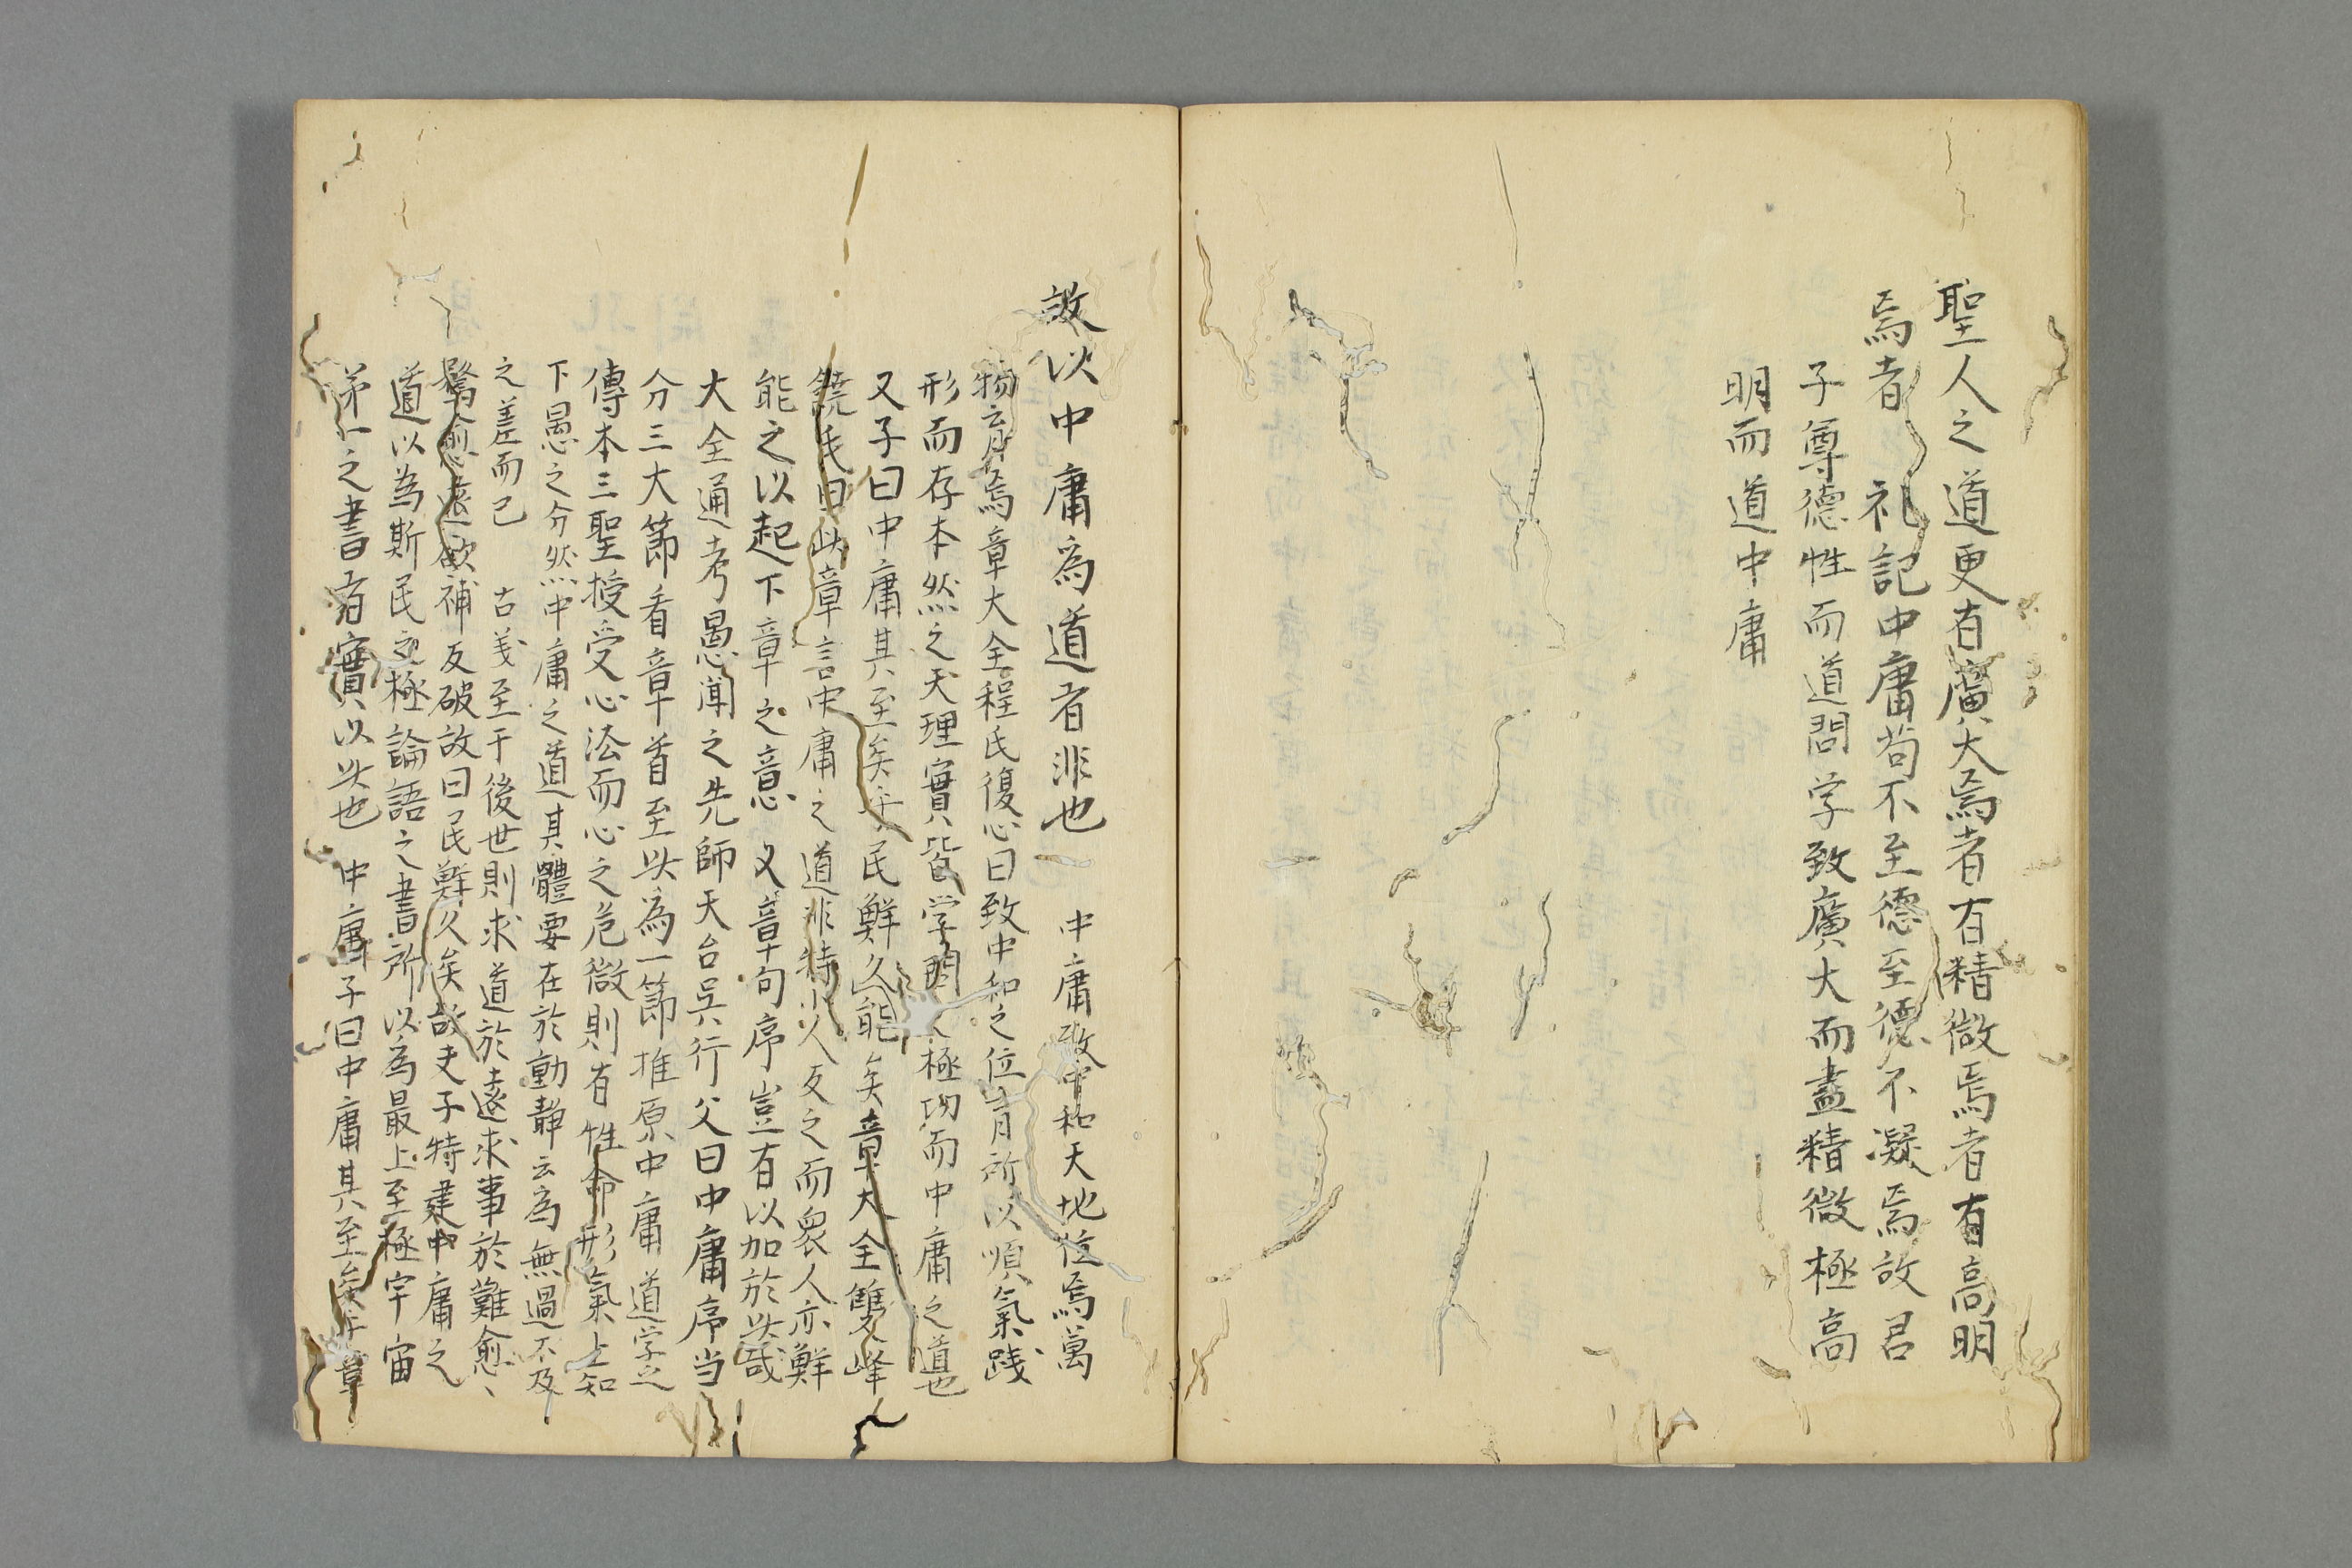 聖人之道更有廣大焉者有精微焉者有高明
焉者 礼記中庸苟不至德至德不凝焉故君
子尊德性而道問学致廣大而盡精微極高
明而道中庸
故以中庸為道者非也 中庸致中和天地位焉萬
物育焉章大全程氏復心曰致中和之位育所以順氣踐
形而存本然之天理實皆学問之極功而中庸之道也
又子曰中庸其至矣乎民鮮久能矣章大全雙峰
饒氏曰此章言中庸之道非特小人反之而衆人亦鮮
能之以起下章之意 又章句序豈有以加於此哉
大全通考愚聞之先師天台呉行父曰中庸序当
分三大節看章首至此為一節推原中庸道学之
傳本三聖授受心法而心之危微則有性命形氣上知
下愚之分然中庸之道其體要在於動靜云為無過不及
之差而已 古義至于後世則求道於遠求事於難愈、
愈遠欲補反破故曰民鮮久矣故夫子特建中庸之
道以為斯民之極論語之書所以為最上至極宇宙
苐一之書者實以此也 中庸子曰中庸其至矣乎章